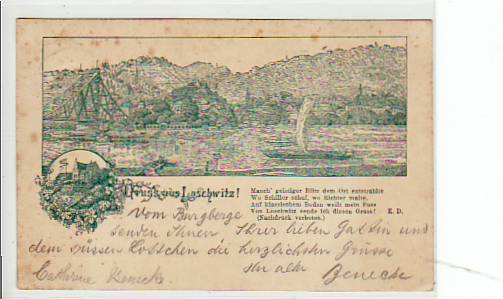 Gruss aus Loschwitz!
Manch' geistiger Blitz dem Ort entstrahlte
Wo Schiller schuf, wo Richter malte.
Auf klassischem Boden weilt mein Fuss
Von Loschwitz sende ich diesen Gruss! E. D.
(Nachdruck verboten.)
Vom Burgberge
senden Ihnen Ihrer lieben Gattin und
dem süssen Lottchen die herzlichsten Grüsse
Ihr alter Benecke
Cathrine Benecke